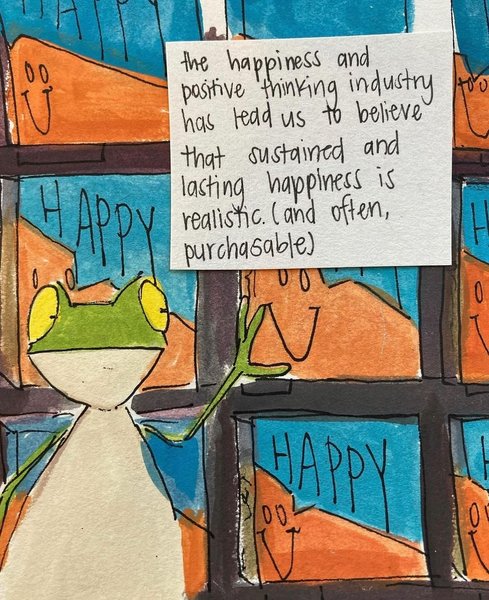 HAPPY
the happiness and
positive thinking industry
has lead us to believe
that sustained and
lasting happiness is
realistic. (and often,
purchasable)
HAPPY
HAPPY